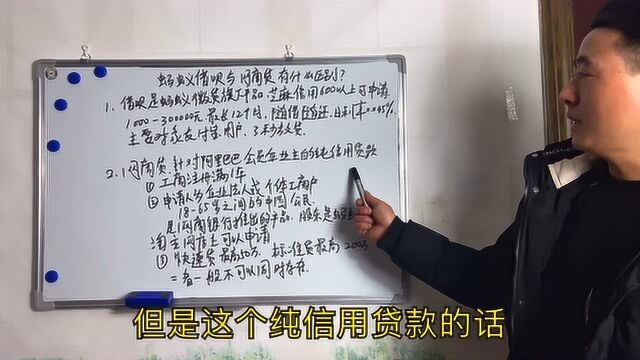 蚂蚁借呗与网商贷有什么区别?
1、借呗是蚂蚁微贷旗下产品 芝麻信用600以上可申请
1000-300000元 最长12个月 随借随还 日利率0.045%
主要对象支付宝用户、3秒放贷
2、网商贷 针对阿里巴巴会员企业主的纯信用贷款
① 工商注册满1年
② 申请人为企业法人或个体工商户
18-65岁之间的中国公民
是网商银行推出的产品 股东是蚂蚁
淘宝网店主可以申请
③ 快速贷 最高 标准贷最高200万
二者一般不可以同时存在
但是这个纯信用贷款的话